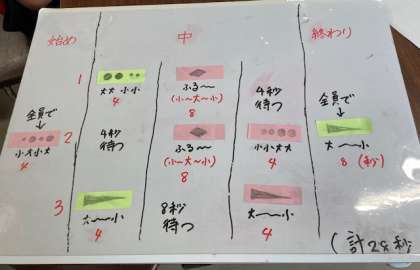 始め 中 終わり
1
大大 小小
4
ふる〜〜
(小〜大〜小)
8
4秒
待つ
全員で
↓
2
小大小大
4
4秒
待つ
ふる〜〜
(小〜大〜小)
8
小小大大
4
全員で
↓
大〜小
8 (秒)
3
大〜〜小
4
8秒
待つ
大〜〜小
4
(計28秒